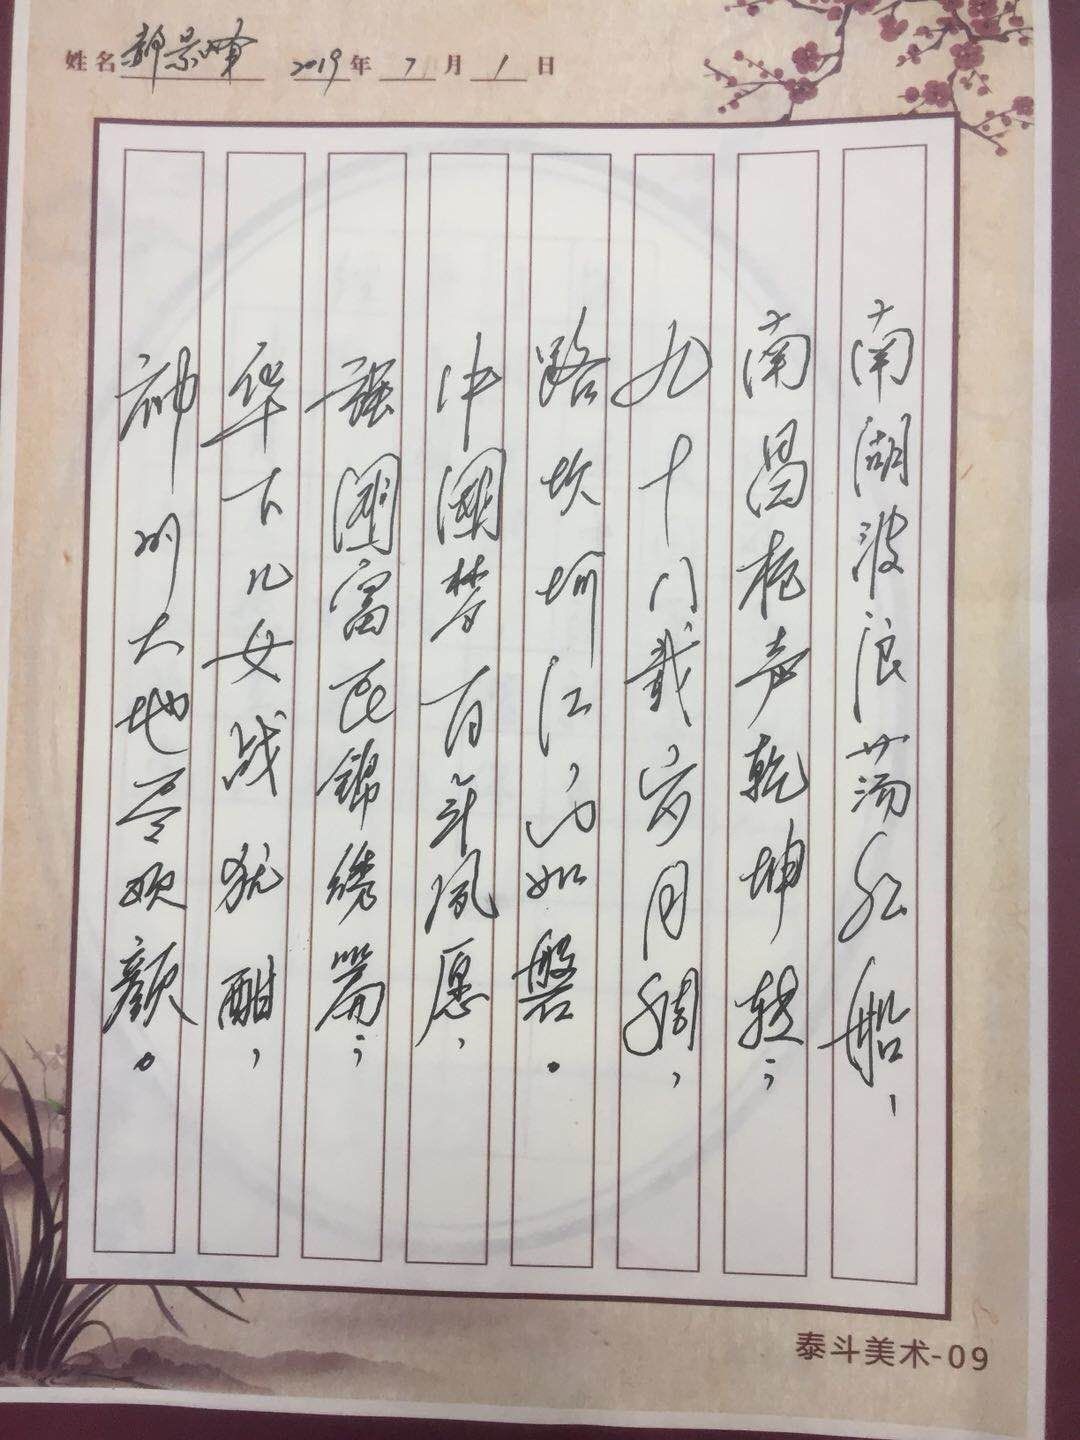 姓名 郝景峰 2019年7月1日
南湖波浪荡红船，
南昌枪声乾坤转；
九十八载岁月稠，
路坎坷江山如磐。
中国梦百年夙愿，
强国富民锦绣篇；
华下儿女战犹酣，
神州大地尽欢颜。
泰斗美术-09